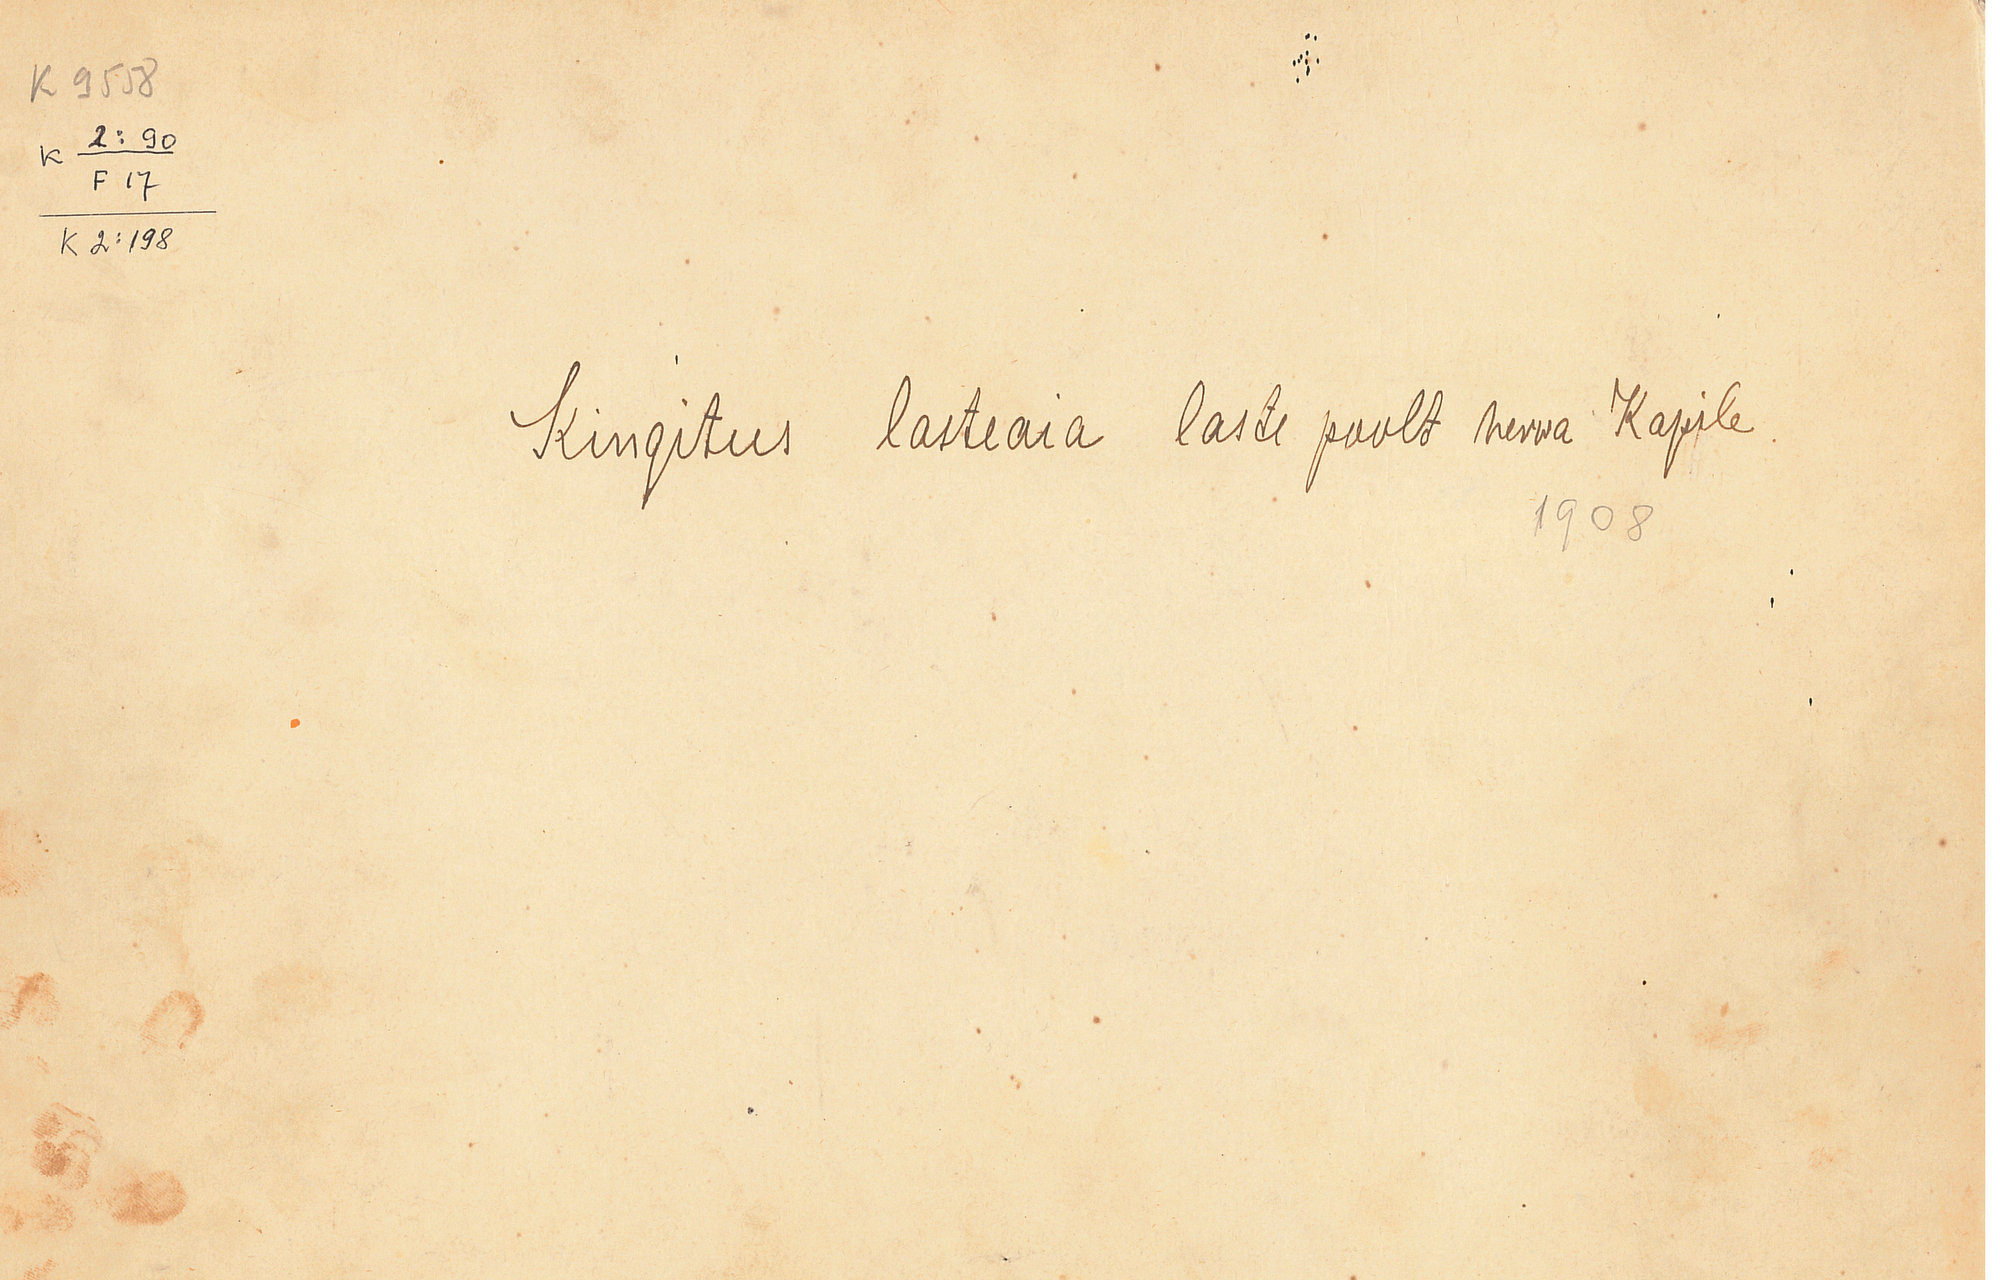 K 9558
K 2:90
F 17
K 2:198
Kingitus lasteaia laste poolt herra Kapile
1908